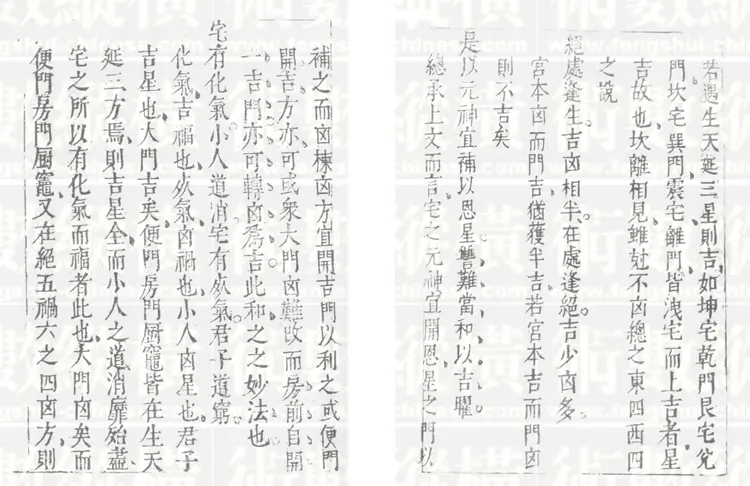 若遇生天延三星則吉如坤宅乾門艮宅兌
門坎宅巽門震宅離門皆洩宅而上吉者星
吉故也坎離相見雖尅不凶總之東四西四
之說
絕處逢生吉凶相半在處逢絕吉少凶多
宮本凶而門吉猶獲半吉若宮本吉而門凶
則不吉矣
是以元神宜補以恩星讐難當和以吉曜
總承上文而言宅之元神宜開恩星之門以
補之而凶棟凶方宜開吉門以利之或便門
開吉方亦可或衆大門凶難改而房前自開
一吉門亦可轉凶爲吉此和之之妙法也
宅有化氣小人道消宅有殀氣君子道窮
化氣吉福也殀氣凶禍也小人凶星也君子
吉星也大門吉矣便門房門厨竈皆在生天
延三方焉則吉星全而小人之道消靡殆盡
宅之所以有化氣而福者此也大門凶矣而
便門房門厨竈又在絕五禍六之四凶方則